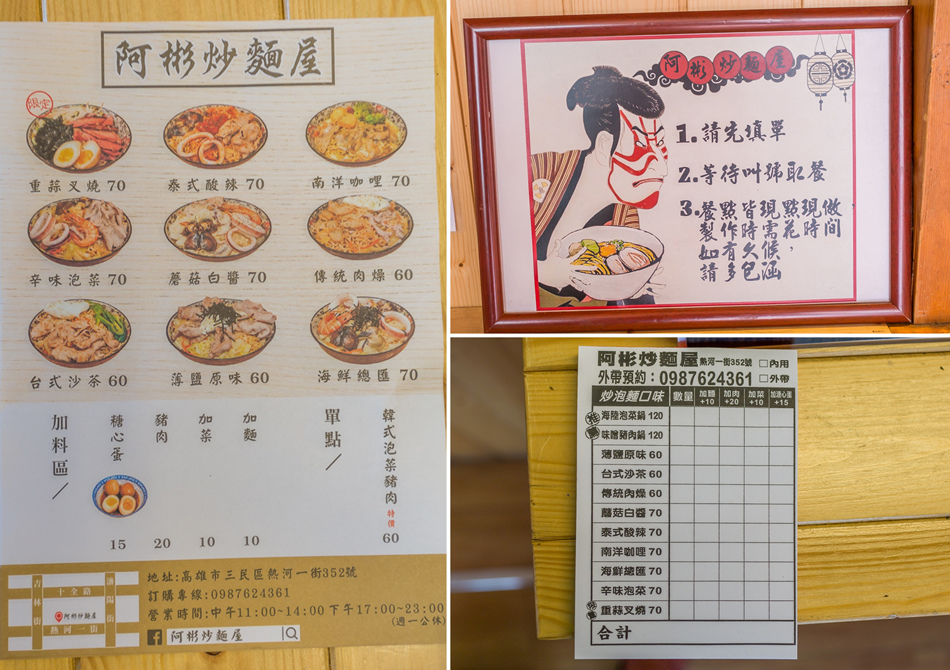 阿彬炒麵屋
限定
重蒜叉燒 70
泰式酸辣 70
南洋咖哩 70
辛味泡菜 70
蘑菇白醬 70
傳統肉燥 60
台式沙茶 60
薄鹽原味 60
海鮮總匯 70
加料區/
糖心蛋 15
豬肉 20
加菜 10
加麵 10
單點/
韓式泡菜豬肉 特價 60
吉林街
十全路
阿彬炒麵屋
熱河一街
地址:高雄市三民區熱河一街352號
訂購專線:0987624361
營業時間:中午11:00~14:00 下午17:00~23:00
(週一公休)
f 阿彬炒麵屋
阿彬炒麵屋
1.請先填單
2.等待叫號取餐
3.餐點皆現點現做
製作時需花時間
如有久候,
請多包涵
阿彬炒麵屋 熱河一街352號 □內用
外帶預約:0987624361 □外帶
炒泡麵口味 數量 加麵+10 加肉+20 加菜+10 加溏心蛋+15
海陸泡菜鍋 120
味噌豬肉鍋 120
薄鹽原味 60
台式沙茶 60
傳統肉燥 60
蘑菇白醬 70
泰式酸辣 70
南洋咖哩 70
海鮮總匯 70
辛味泡菜 70
重蒜叉燒 70
合計